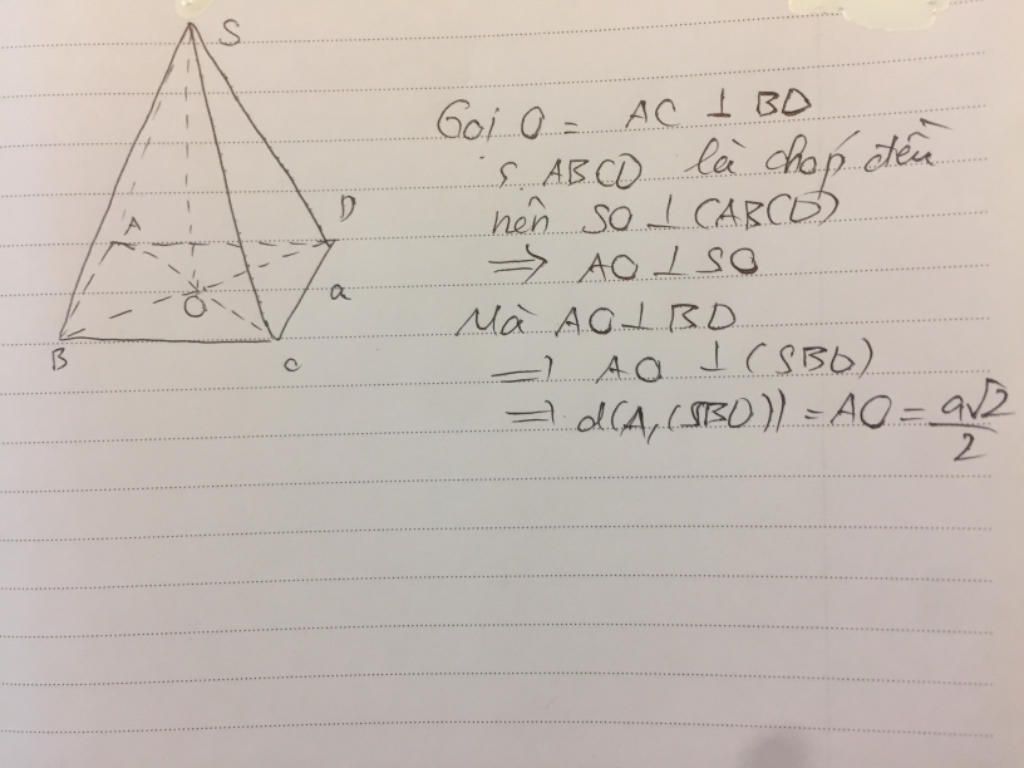 S
A
D
O
a
B
C
Gọi O = AC ⊥ BD
S.ABCD là chóp đều
nên SO ⊥ (ABCD)
⇒ AO ⊥ SO
Mà AO ⊥ BD
⇒ AO ⊥ (SBD)
⇒ d(A,(SBD)) = AO = a√2/2